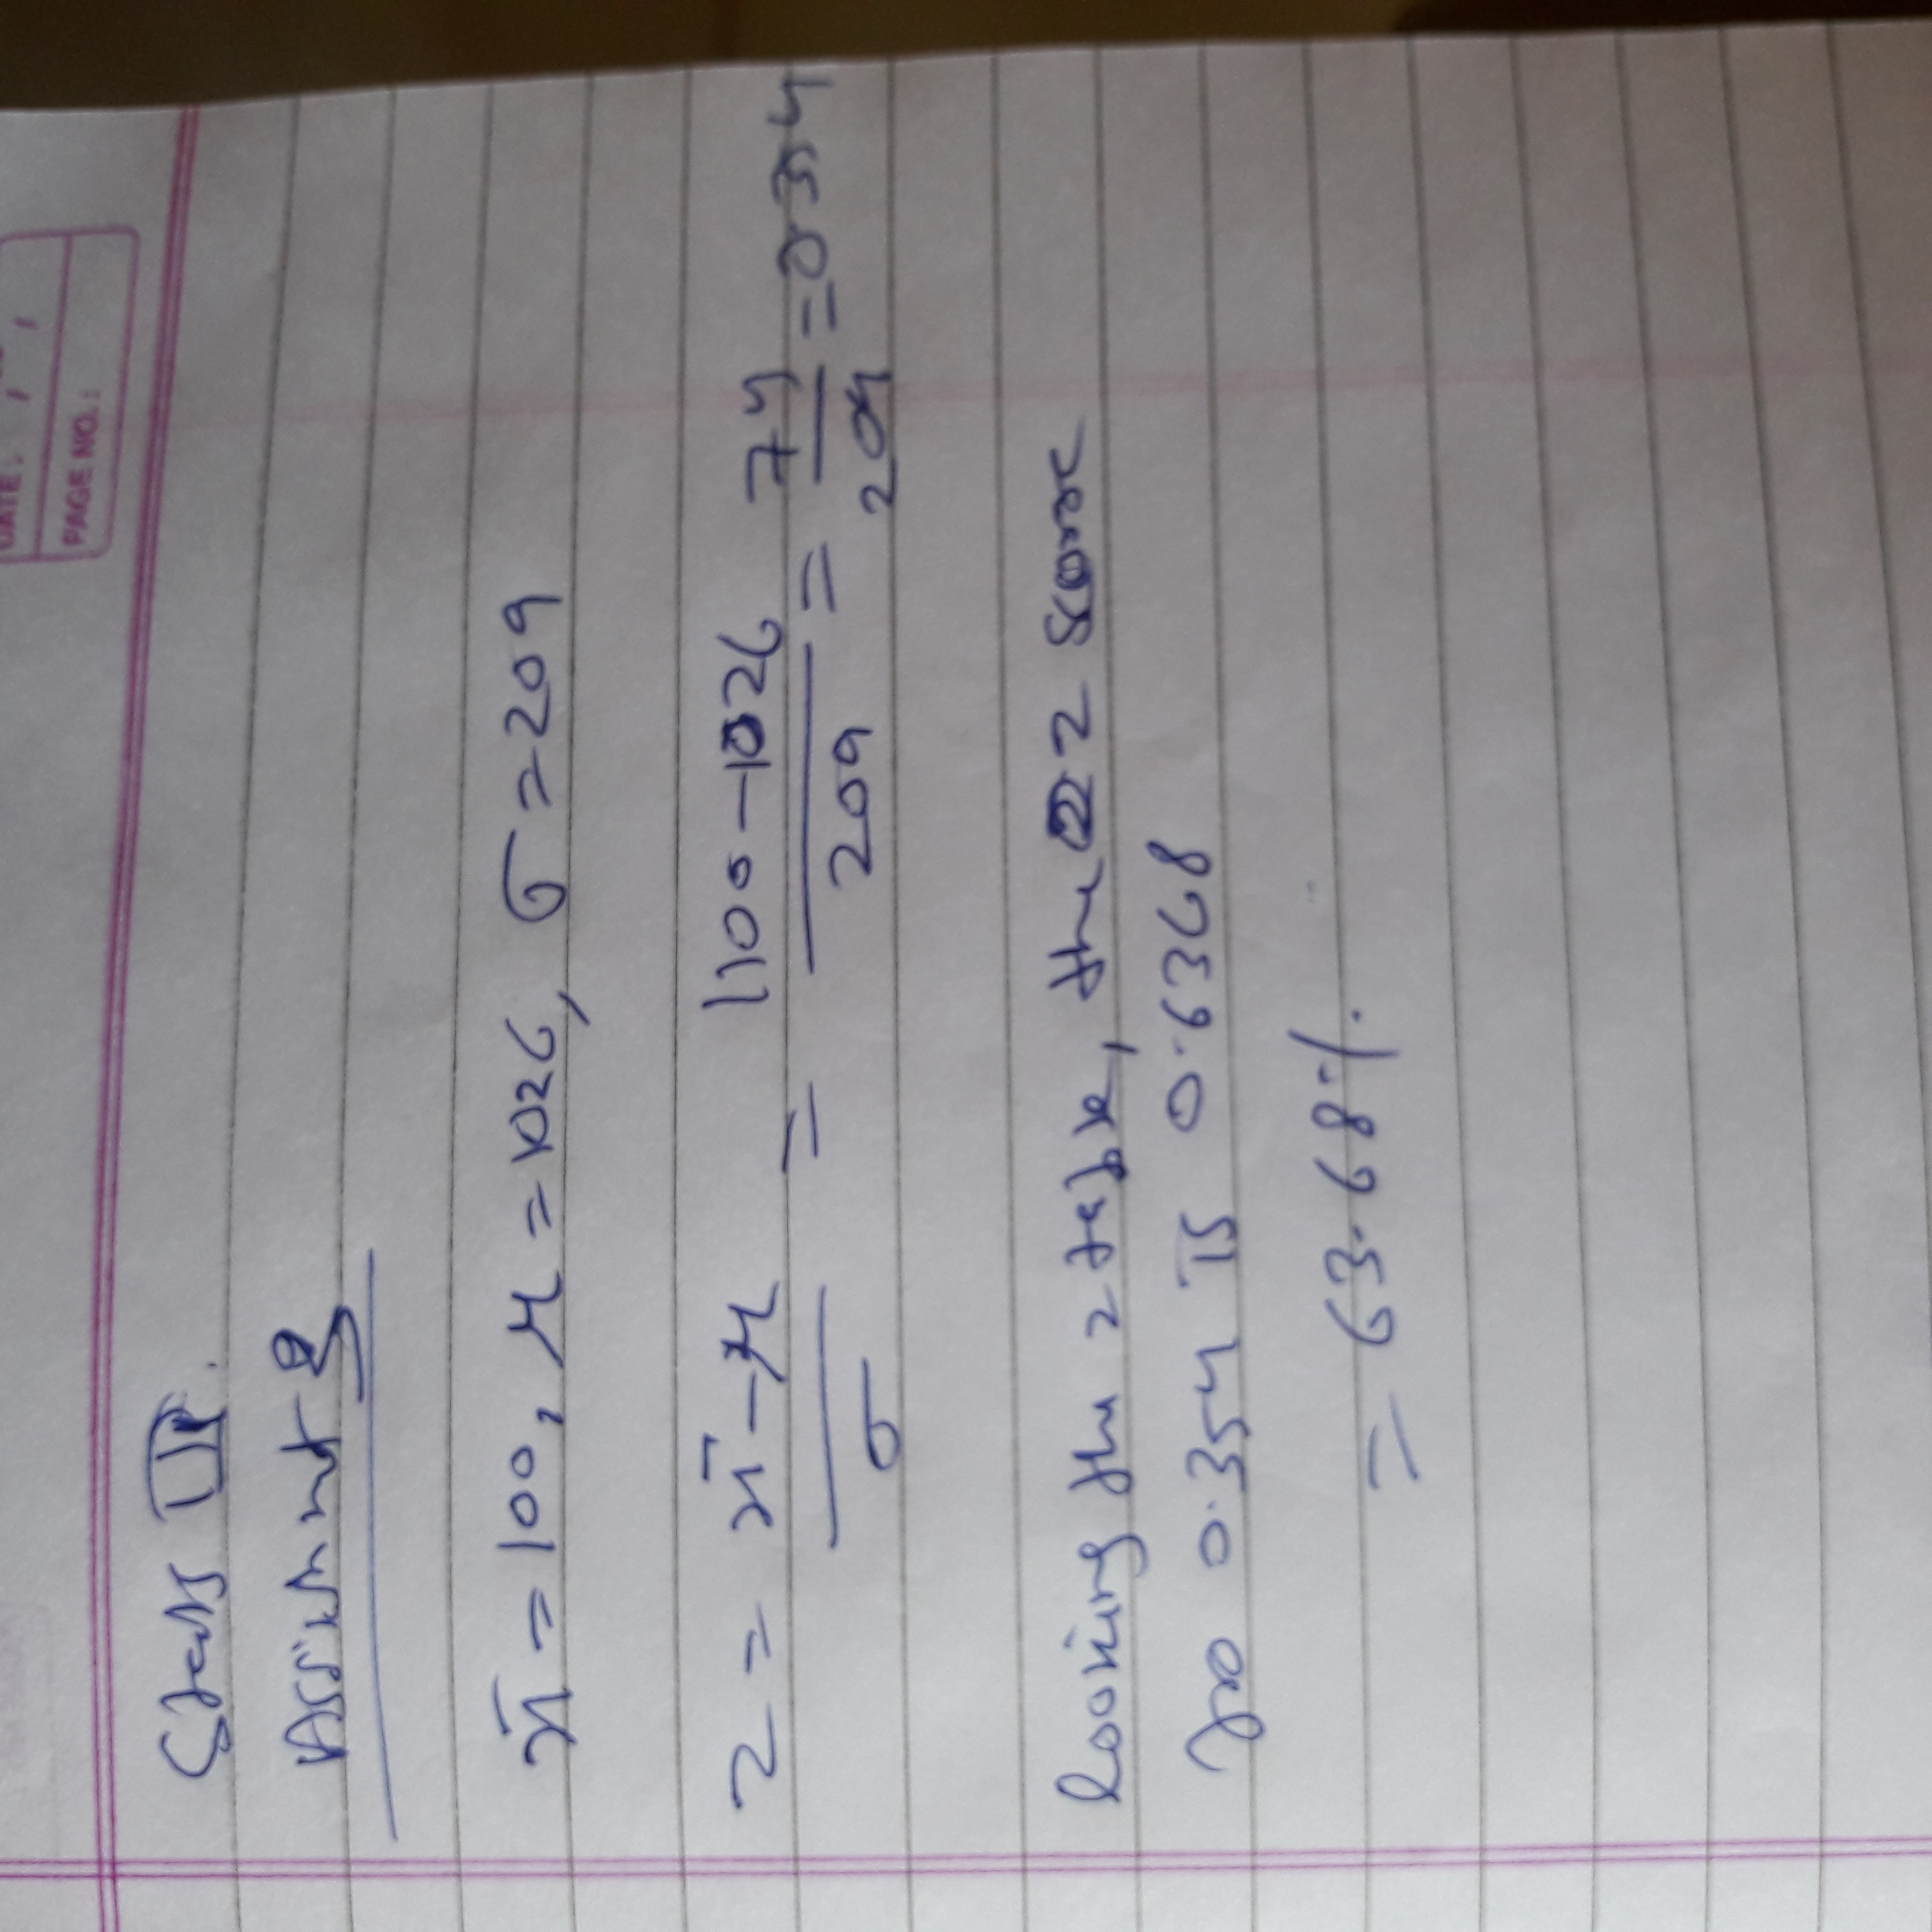 DATE: / /
PAGE NO.:
Stats III.
Assignment 3
x̄ = 100, μ = 1026, σ = 209
z = x̄ - μ / σ = 1100 - 1026 / 209 = 74 / 209 = 0.354
looking the z table, the z score
for 0.354 is 0.6368
= 63.68%.